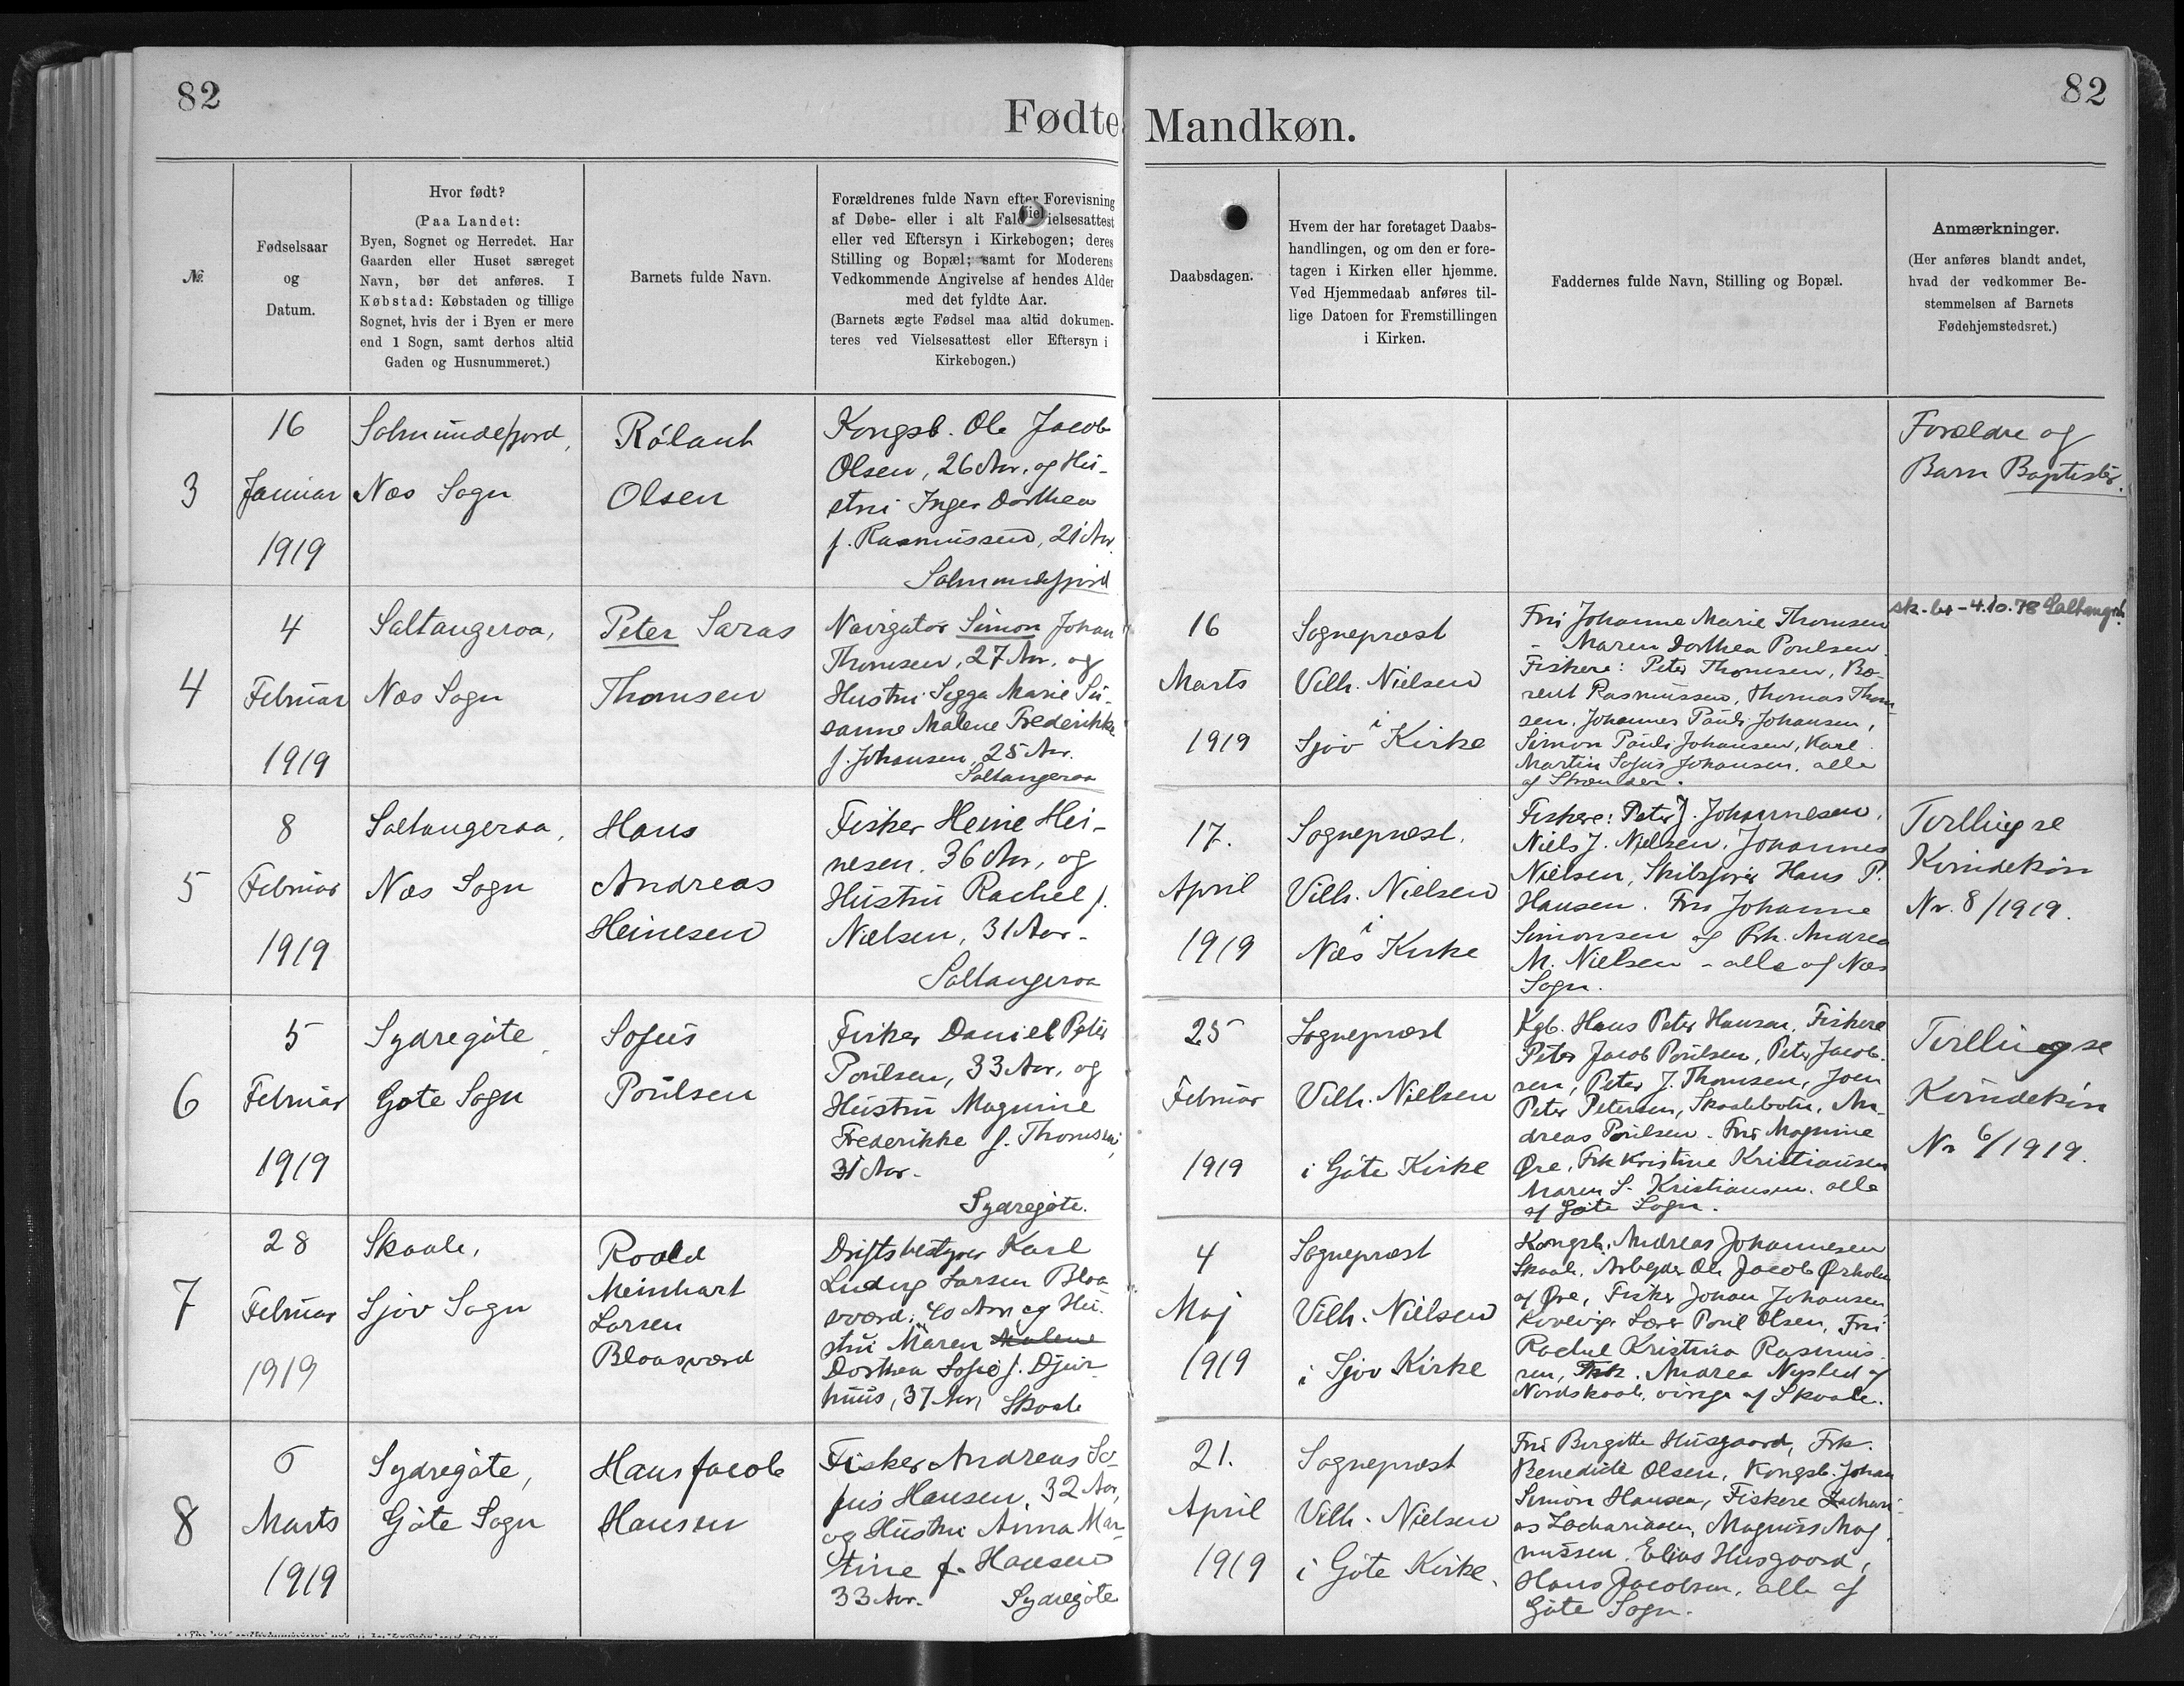 82
82
Fødte Mandkøn.
№
Fødselsaar
og
Datum.
Hvor født?
(Paa Landet:
Byen, Sognet og Herredet. Har
Gaarden eller Huset særeget
Navn, bør det anføres. I
Købstad: Købstaden og tillige
Sognet, hvis der i Byen er mere
end 1 Sogn, samt derhos altid
Gaden og Husnummeret.)
Barnets fulde Navn.
Forældrenes fulde Navn efter Forevisning
af Døbe- eller i alt Fald Vielsesattest
eller ved Eftersyn i Kirkebogen; deres
Stilling og Bopæl; samt for Moderens
Vedkommende Angivelse af hendes Alder
med det fyldte Aar.
(Barnets ægte Fødsel maa altid dokumen-
teres ved Vielsesattest eller Eftersyn i
Kirkebogen.)
Daabsdagen.
Hvem der har foretaget Daabs-
handlingen, og om den er fore-
tagen i Kirken eller hjemme.
Ved Hjemmedaab anføres til-
lige Datoen for Fremstillingen
i Kirken.
Faddernes fulde Navn, Stilling og Bopæl.
Anmærkninger.
(Her anføres blandt andet,
hvad der vedkommer Be-
stemmelsen af Barnets
Fødehjemstedsret.)
3
16
Januar
1919
Solmundefjord,
Næs Sogn
Rólant
Olsen
Kongsb. Ole Jacob
Olsen, 26 Aar, og Hu-
stru Inger Dorthea
f. Rasmussen, 21 Aar
Solmundefjord
Forældre og
Barn Baptister.
4
4
Februar
1919
Saltangeraa,
Næs Sogn
Peter Saras
Thomsen
Navigatør Simon Johan
Thomsen, 27 Aar, og
Hustru Segga Marie Su-
sanne Malene Frederikke
f. Johansen, 25 Aar.
Saltangeraa
16
Marts
1919
Sognepræst
Vilh. Nielsen
i
Sjov Kirke
Fru Johanne Marie Thomsen
- Maren Dorthea Poulsen
Fiskere: Peter Thomsen, Bæ-
rent Rasmussen, Thomas Thom-
sen, Johannes Pauli Johansen,
Simon Pauli Johansen, Karl
Martin Sofus Johansen, alle
af Strænder.
4.10.78
5
8
Februar
1919
Saltangeraa,
Næs Sogn
Hans
Andreas
Heinesen
Fisker Heine Hei-
nesen, 36 Aar, og
Hustru Rachel f.
Nielsen, 31 Aar-
Saltangeraa
17.
April
1919
Sognepræst,
Vilh. Nielsen
i
Næs Kirke
Fiskere: Peter J. Johannesen,
Niels J. Nielsen, Johannes
Nielsen, Skibsfører Hans P.
Hansen. Fru Johanne
Simonsen og Frk. Andrea
M. Nielsen - alle af Næs
Sogn.
Tvillingse
Kvindekøn
Nr. 8/1919.
6
5
Februar
1919
Sydregøte,
Gøte Sogn
Sofus
Poulsen
Fisker Daniel Peter
Poulsen, 33 Aar, og
Hustru Magnine
Frederikke f. Thomsen,
31 Aar-
Sydregøte.
25
Februar
1919
Sognepræst
Vilh. Nielsen
i Gøte Kirke
Kgb. Hans Peter Hansen, Fiskere
Peter Jacob Poulsen, Peter Jacob-
sen, Peter J. Thomsen, Joen
Peter Petersen, Skaalebotn, An-
dreas Poulsen. Fru Magnine
Øre, Frk Kristine Kristiansen
Maren S. Kristiansen, alle
af Gøte Sogn.
Tvillingse
Kvindekøn
Nr 6/1919.
7
28
Februar
1919
Skaale,
Sjov Sogn
Roald
Meinhart
Larsen
Bloasværd
Driftsbestyrer Karl
Ludvig Larsen Bloa
sværd, 40 Aar og Hu-
stru Maren Malene
Dorthea Sofie f. Djur-
huus, 37 Aar, Skaale
4
Maj
1919
Sognepræst
Vilh. Nielsen
i Sjov Kirke
Kongsb. Andreas Johannesen
Skaale, Arbejder Ole Jacob Ørholm
af Øre, Fisker Johan Johansen
Kvolvig, Lærer Poul Olsen, Fru
Rachel Kristina Rasmus-
sen, Frk. Andrea Nysted af
Nordskaale, øvrige af Skaale.
8
6
Marts
1919
Sydregøte,
Gøte Sogn
Hans Jacob
Hansen
Fisker Andreas So-
fus Hansen, 32 Aar,
og Hustru Anna Mar-
tine f. Hansen
33 Aar. Sydregøte
21.
April
1919
Sognepræst
Vilh. Nielsen
i Gøte Kirke.
Fru Birgitte Husgaard, Frk.
Benedicte Olsen, Kongsb. Johan
Simon Hansen, Fiskere Zachari-
as Zachariasen, Magnus Mag-
nussen, Elias Husgaard,
Hans Jacobsen, alle af
Gøte Sogn.